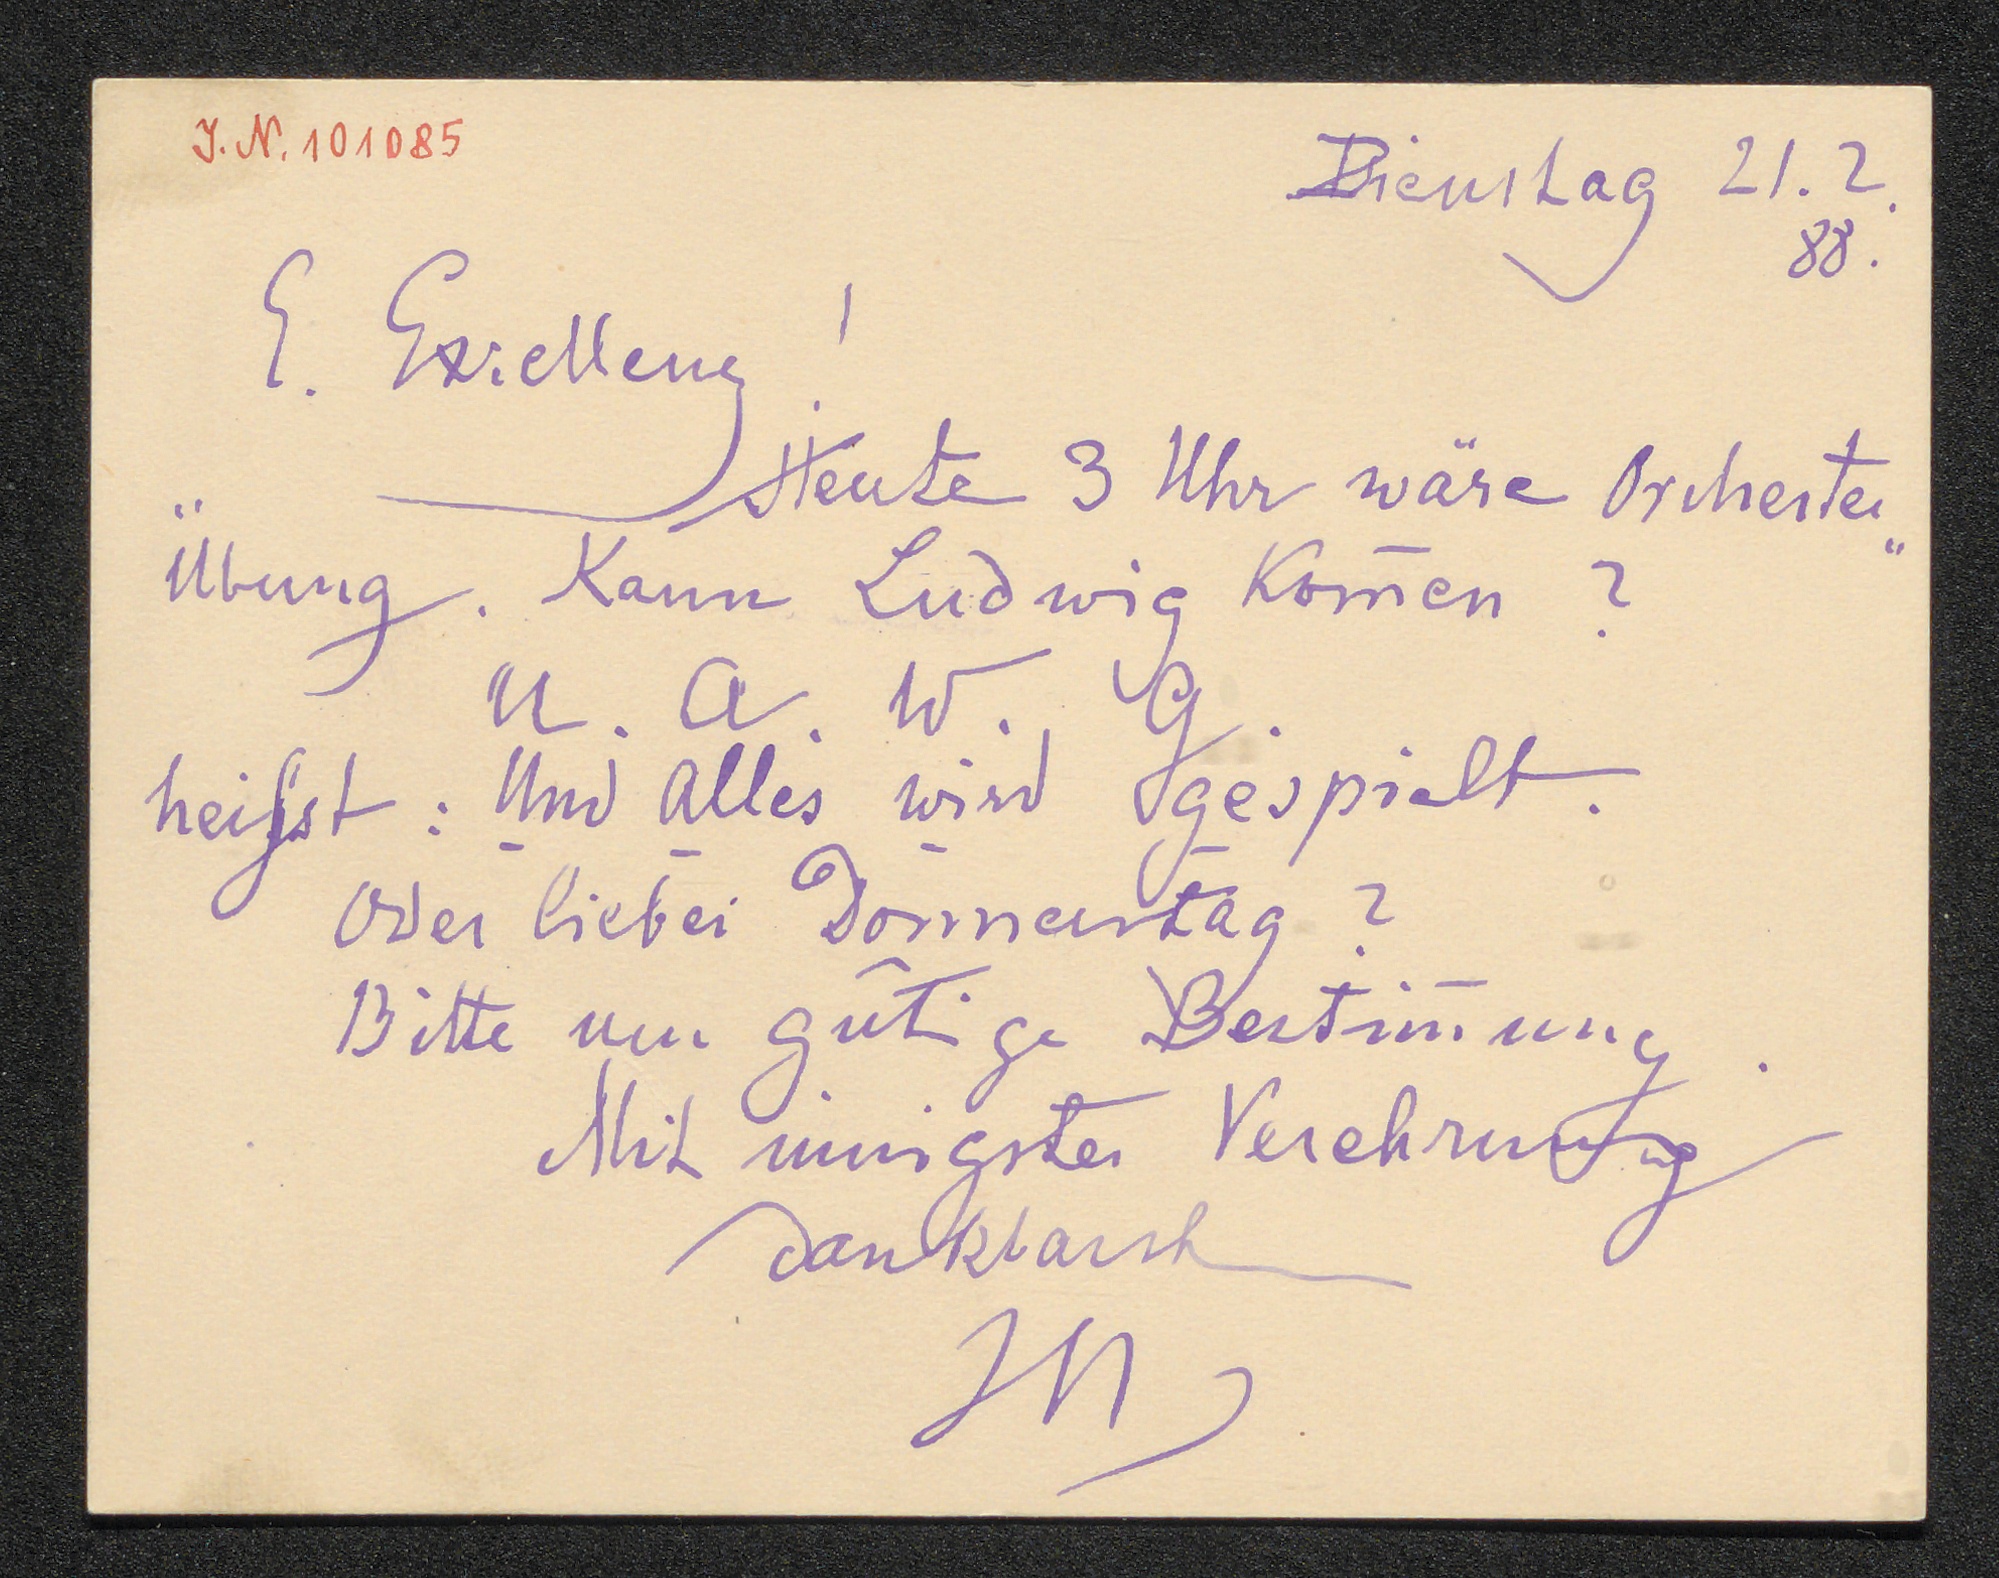 J.N. 101085
Dienstag 21.2.
88.
E. Exzellenz!
Heute 3 Uhr wäre Orchester„
Übung. Kann Ludwig kom̅en?
U. A. W. G.
heißst: Und Alles wird gespielt.
Oder lieber Donnerstag?
Bitte um gütige Bestim̅ung.
Mit innigster Verehrung
dankbarst